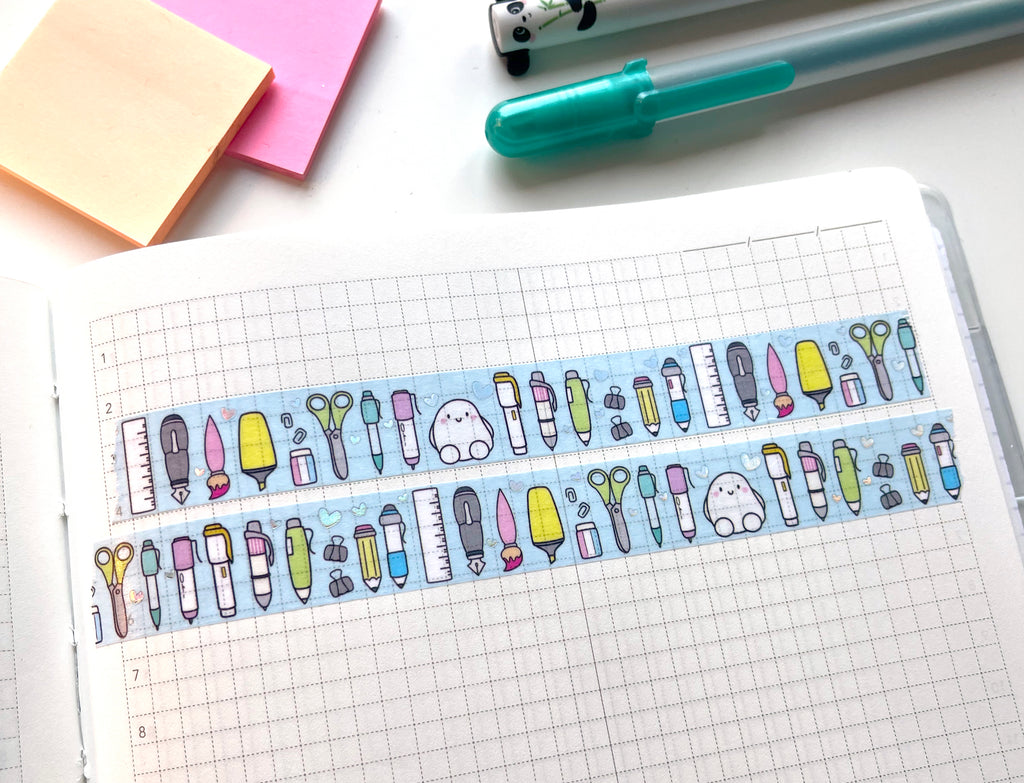 1
2
3
4
6
7
8